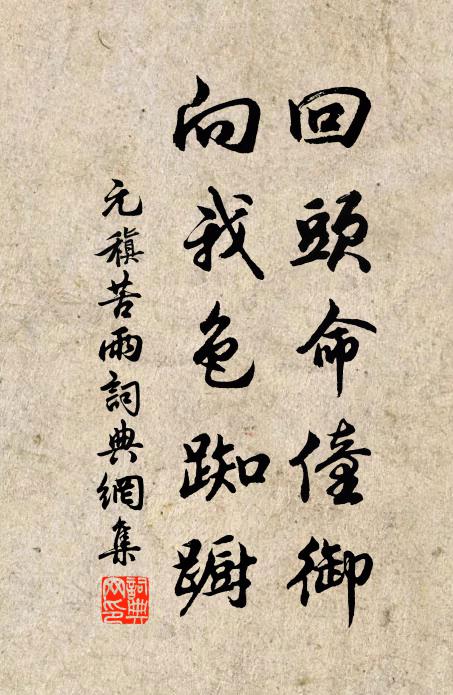 回頭命僮御
向我色踟躕
元稹苦雨詞典網集
詞典
网印